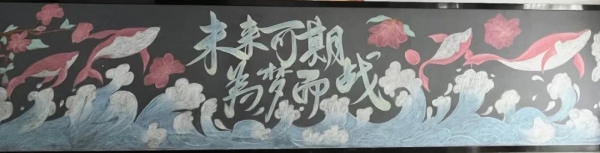 未来可期
为梦而战